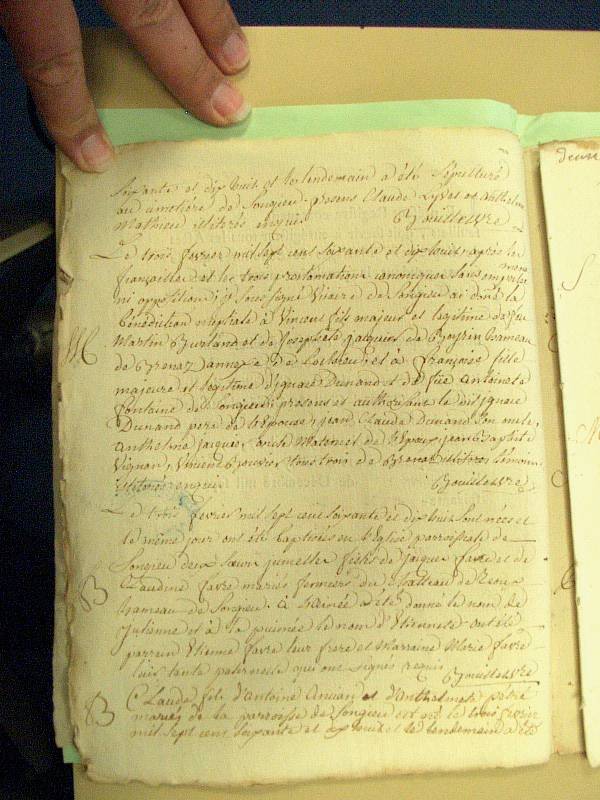 Soixante et dix huit et le lendemain a été sépulturé
au cimetière de Songieu presens Claude Lyvet et Anthelme
Mathieu illiterés enquis Bouillet vre
Le trois fevrier mil sept cens soixante et dix huit après les
fiançailles et les trois proclamations canoniques sans empeche
mens
ni opposition, je soussigné vicaire de Songieu ai donné la
bénédiction nuptiale à Vincent fils majeur et légitime de feu
M
Martin et de Josephte Jacquier de hameau
de Brenaz annexe de Lochieu, et à Françoise fille
majeure et légitime d'ignace Dunand et de füe Antoinete
Fontaine de Songieu: presens et authorisant le dit ignace
Dunand pere de l'Epouse, jean Claude Dunand son oncle,
Anthelme jacquier oncle Maternel de l'Epoux, jean Baptiste
Vignon, Vincent tous trois de Brenaz illiterés temoins
illiterés enquis Bouillet vre
Le trois fevrier mil sept cens soixante et dix huit sont nées et
le même jour ont été baptisées en l'Eglise parroissiale de
Songieu deux sœurs jumelles filles de jacques favre et de
B
Claudine favre mariés fermiers du Chatteau de
hameau de Songieu. à l'ainée a été donné le nom de
Julienne et à la puinée le nom d'Etiennete ont été
parrain Etienne favre leur frere et Marraine Marie favre
leur tante paternelle qui ont signés requis Bouillet vre
B
Claude fils d'antoine Ancian et d'Anthelmete
mariés de la parroisse de Songieu est né le trois fevrier
mil sept cens soixante et dix huit et le lendemain a été